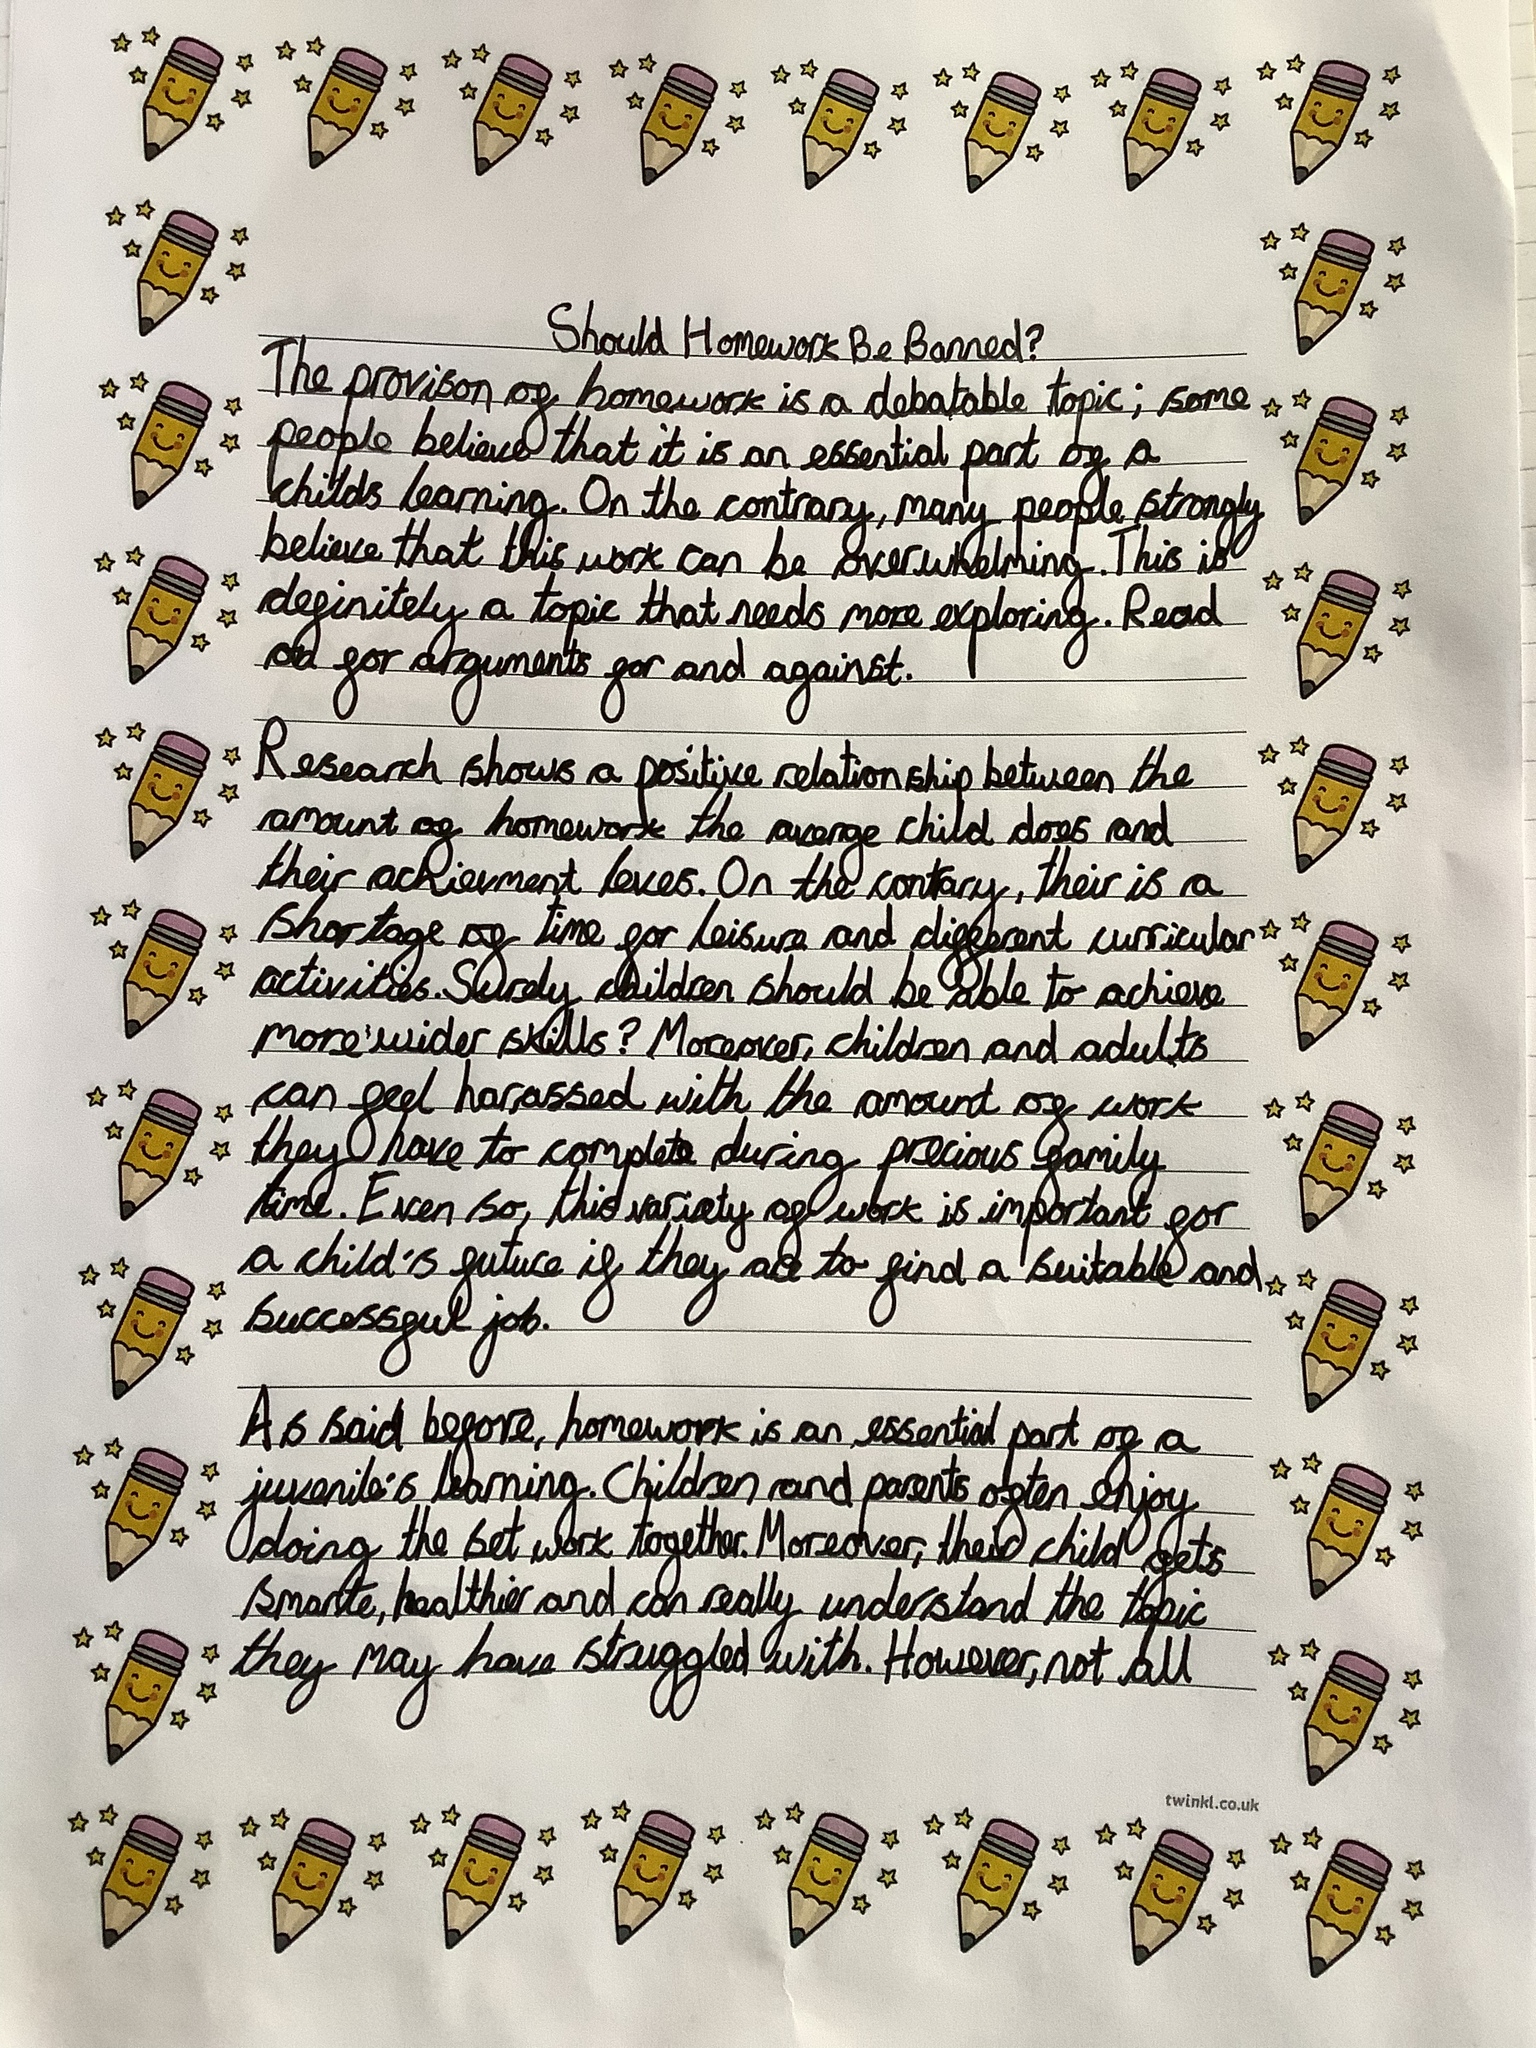 Should Homework Be Banned?
The provison of homework is a debatable topic; some
people believe that it is an essential part of a
childs learning. On the contrary, many people strongly
believe that this work can be overwhelming. This is
definitely a topic that needs more exploring. Read
on for arguments for and against.
Research shows a positive relationship between the
amount of homework the averge child does and
their achievment leves. On the contary, their is a
shortage of time for leisure and different curricular
activities. Surely children should be able to achieve
more wider skills? Moreover, children and adults
can feel harassed with the amount of work
they have to complete during precious family
time. Even so, this variety of work is important for
a child's future if they are to find a suitable and
successful job.
As said before, homework is an essential part of a
juvenile's learning. Children and parents often enjoy
doing the set work together. Moreover, their child gets
smarte, healthier and can really understand the topic
they may have struggled with. However, not all
twinkl.co.uk